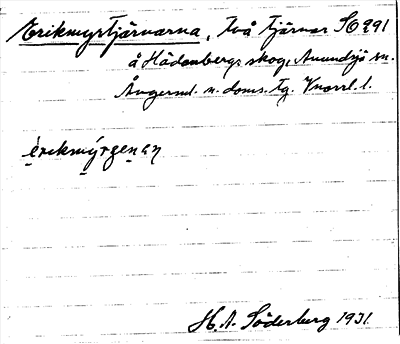 Erikmyrtjärnarna, två tjärnar SO 291
å Hädanbergs skog, Anundsjö sn.
Ångerml. n. doms. tg. Vnorrl. l.
èrikmýrgenan
H. A. Söderberg 1931